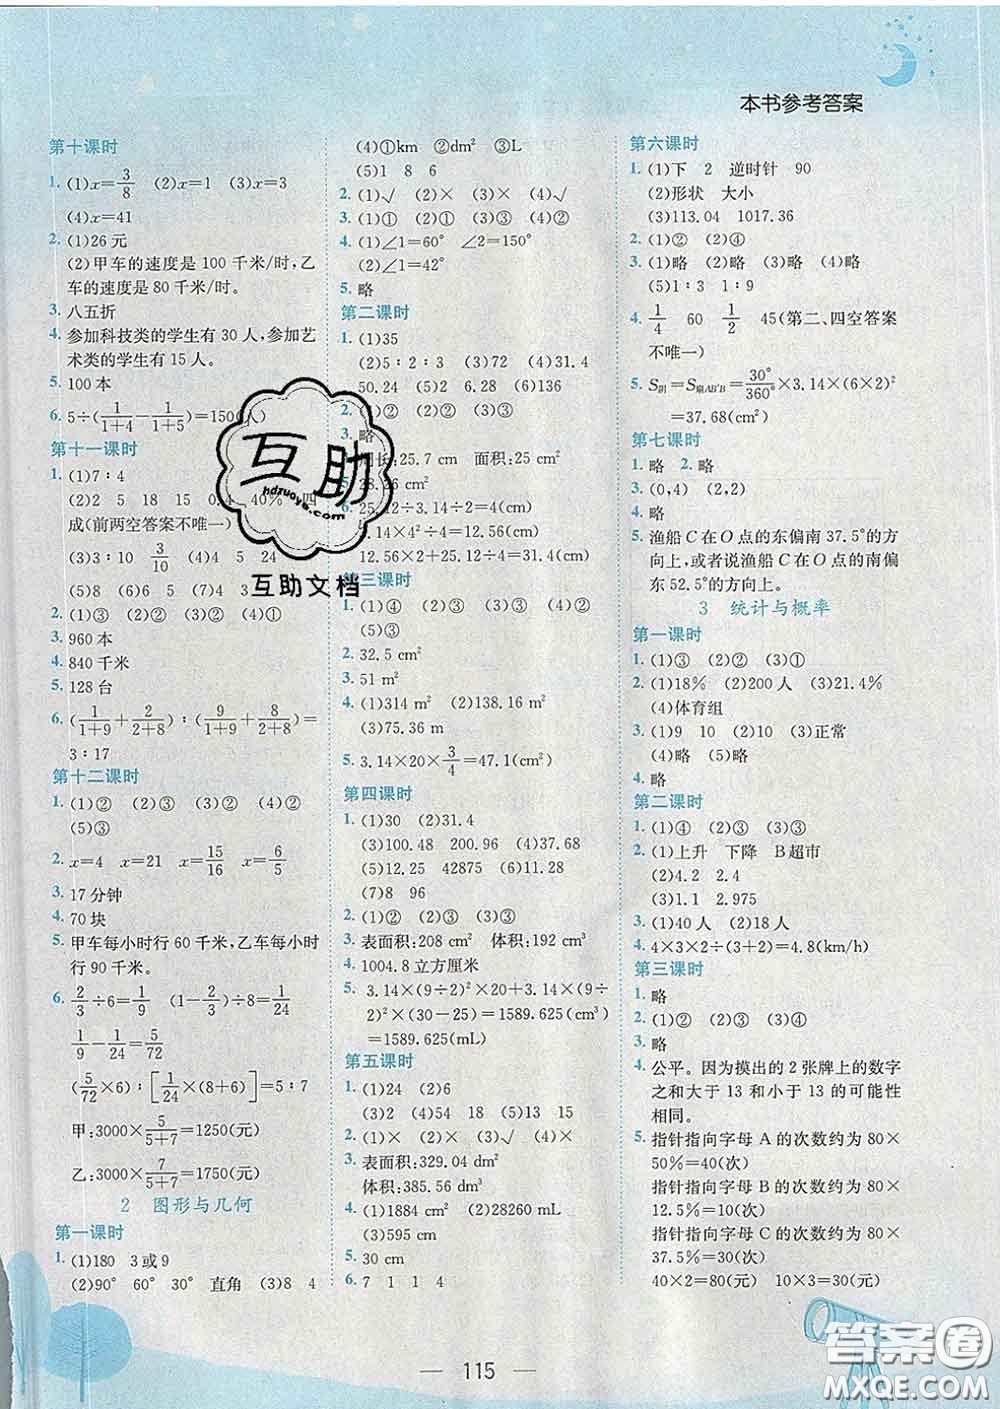 本书参考答案
第十课时
1. (1)x=3/8 (2)x=1 (3)x=3
(4)x=41
2. (1)26元
(2)甲车的速度是100千米/时,乙
车的速度是80千米/时。
3. 八五折
4. 参加科技类的学生有30人,参加艺
术类的学生有15人。
5. 100本
6. 5÷(1/(1+4)-1/(1+5))=150(人)
第十一课时
1. (1)7∶4
(2)2 5 18 15 0.4 40% 四
成(前两空答案不唯一)
(3)3∶10 3/10 (4)5 24
(5)8 (6)6 5 (7)4 3
2. (1)② (2)③ (3)② (4)①
3. 960本
4. 840千米
5. 128台
6. (1/(1+9)+2/(2+8))∶(9/(1+9)+8/(2+8))=
3∶17
第十二课时
1. (1)② (2)③ (3)② (4)②
(5)③
2. x=4 x=21 x=15/16 x=6/5
3. 17分钟
4. 70块
5. 甲车每小时行60千米,乙车每小时
行90千米。
6. 2/3÷6=1/9 (1-2/3)÷8=1/24
1/9-1/24=5/72
(5/72×6)∶[1/24×(8+6)]=5∶7
甲:3000×5/(5+7)=1250(元)
乙:3000×7/(5+7)=1750(元)
2 图形与几何
第一课时
1. (1)180 3或9
(2)90° 60° 30° 直角 (3)8 4
(4)①km ②dm² ③L
(5)1 8 6
2. (1)√ (2)× (3)× (4)×
3. (1)① (2)① (3)③ (4)②
4. (1)∠1=60° ∠2=150°
(2)∠1=42°
5. 略
第二课时
1. (1)35
(2)5∶2∶3 (3)72 (4)31.4
50.24 (5)2 6.28 (6)136
2. (1)① (2)③ (3)③
3. 略
4. 周长:25.7 cm 面积:25 cm²
5. 28.26 cm²
6. 25.12÷3.14÷2=4(cm)
3.14×4²÷4=12.56(cm)
12.56×2+25.12÷4=31.4(cm)
第三课时
1. (1)④ (2)④ (3)② (4)①
(5)③
2. 32.5 cm²
3. 51 m²
4. (1)314 m² (2)125.6 m²
(3)75.36 m
5. 3.14×20×3/4=47.1(cm²)
第四课时
1. (1)30 (2)31.4
(3)100.48 200.96 (4)37.68
(5)12.5 42875 (6)1.2
(7)8 96
2. (1)② (2)① (3)② (4)③
3. 表面积:208 cm² 体积:192 cm³
4. 1004.8立方厘米
5. 3.14×(9÷2)²×10+3.14×(9÷
2)²×(30-25)=1589.625(cm³)
=1589.625(mL)
第五课时
1. (1)24 (2)6
(3)2 (4)2512 (5)13 15
2. (1)× (2)× (3)√ (4)×
3. 表面积:329.04 dm²
体积:385.56 dm³
4. (1)1884 cm² (2)28260 mL
(3)595 cm
5. 30 cm
6. 7 1 1 4
第六课时
1. (1)下 2 逆时针 90
(2)形状 大小
(3)113.04 1017.36
2. (1)② (2)④
3. (1)略 (2)略 (3)略 (4)略
(5)1∶3 1∶9
4. 1/4 60 1/2 45(第二、四空答案
不唯一)
5. S阴=S扇AB'B=30°/360°×3.14×(6×2)²
=37.68(cm²)
第七课时
1. 略 2. 略
3. (0,4) (2,2)
4. 略
5. 渔船C在O点的东偏南37.5°的方
向上,或者说渔船C在O点的南偏
东52.5°的方向上。
3 统计与概率
第一课时
1. (1)③ (2)② (3)①
2. (1)18% (2)200人 (3)21.4%
(4)体育组
3. (1)9 10 (2)10 (3)正常
(4)略 (5)略
4. 略
第二课时
1. (1)④ (2)② (3)③
2. (1)上升 下降 B超市
(2)4.2
(3)1.1 2.975
3. (1)40人 (2)18人
4. 4×3×2÷(3+2)=4.8(km/h)
第三课时
1. 略
2. (1)② (2)③ (3)④
3. 略
4. 公平。因为摸出的2张牌上的数字
之和大于13和小于13的可能性
相同。
5. 指针指向字母A的次数约为80×
50%=40(次)
指针指向字母B的次数约为80×
12.5%=10(次)
指针指向字母C的次数约为80×
37.5%=30(次)
40×2=80(元) 10×3=30(元)
115
互助
hdzuoye.com
互助文档
答案圈
MXQE.COM